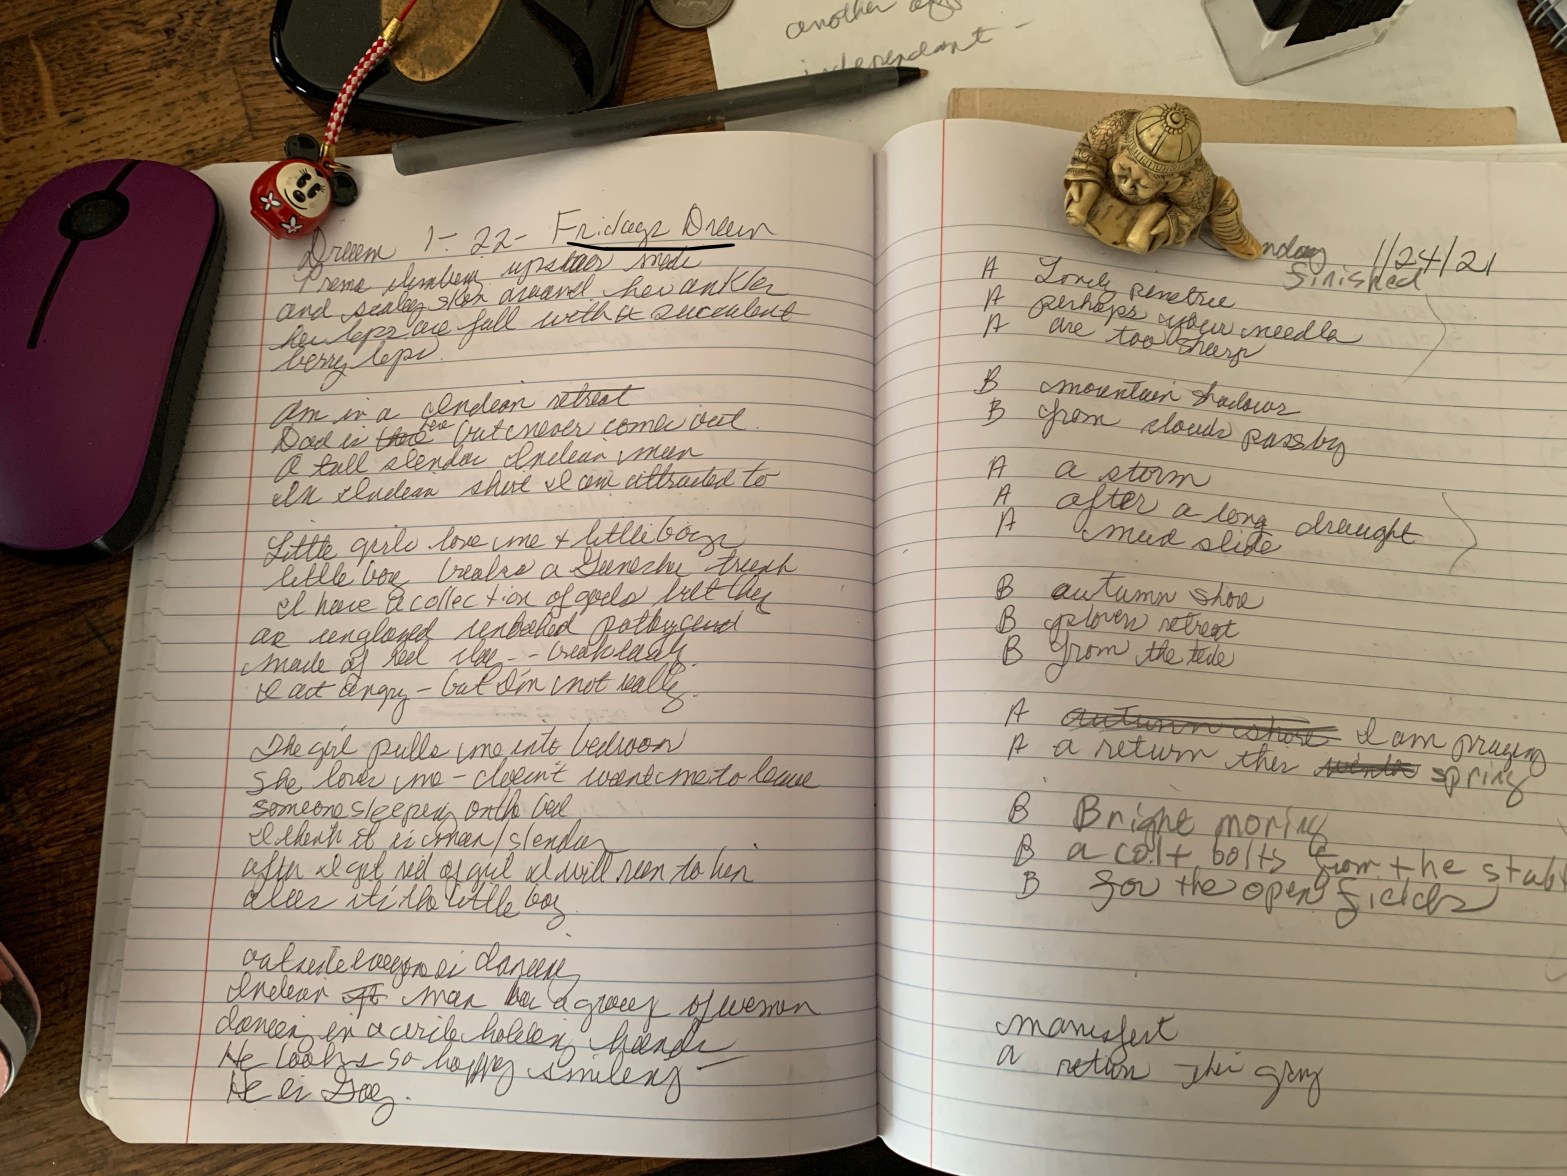 another
independent -
Dream 1-22- Fridays Dream
climbing upstairs
and scaley skin around her ankles
her lips are full with a succulent
berry lips.
Am in a Indian retreat
Dad is here but never comes out.
A tall slendar Indian man
In Indian shirt I am attracted to
Little girls love me + little boys
little boy breaks a Ganesha trunk
I have a collection of gods but they
are unglazed unbaked pottery and
made of red clay -- break easily.
I act angry - but I'm not really.
The girl pulls me into bedroom
She loves me - doesn't want me to leave
someone sleeping on the bed
I think it is man/slendar
after I get rid of girl I will run to him
alas it's the little boy.
outside everyone is dancing
Indian man a group of women
dancing in a circle holding hands
He looks so happy smiling -
He is Gay.
11/24/21
finished
A Lonely pinetree
A perhaps your needles
A are too sharp
B mountain shadows
B from clouds pass by
A a storm
A after a long draught
A mud slide
B autumn shore
B plovers retreat
B from the tide
A autumn shore I am praying
A a return this spring
B Bright moring
B a colt bolts from the stabl
B for the open fields
manifest
a return this